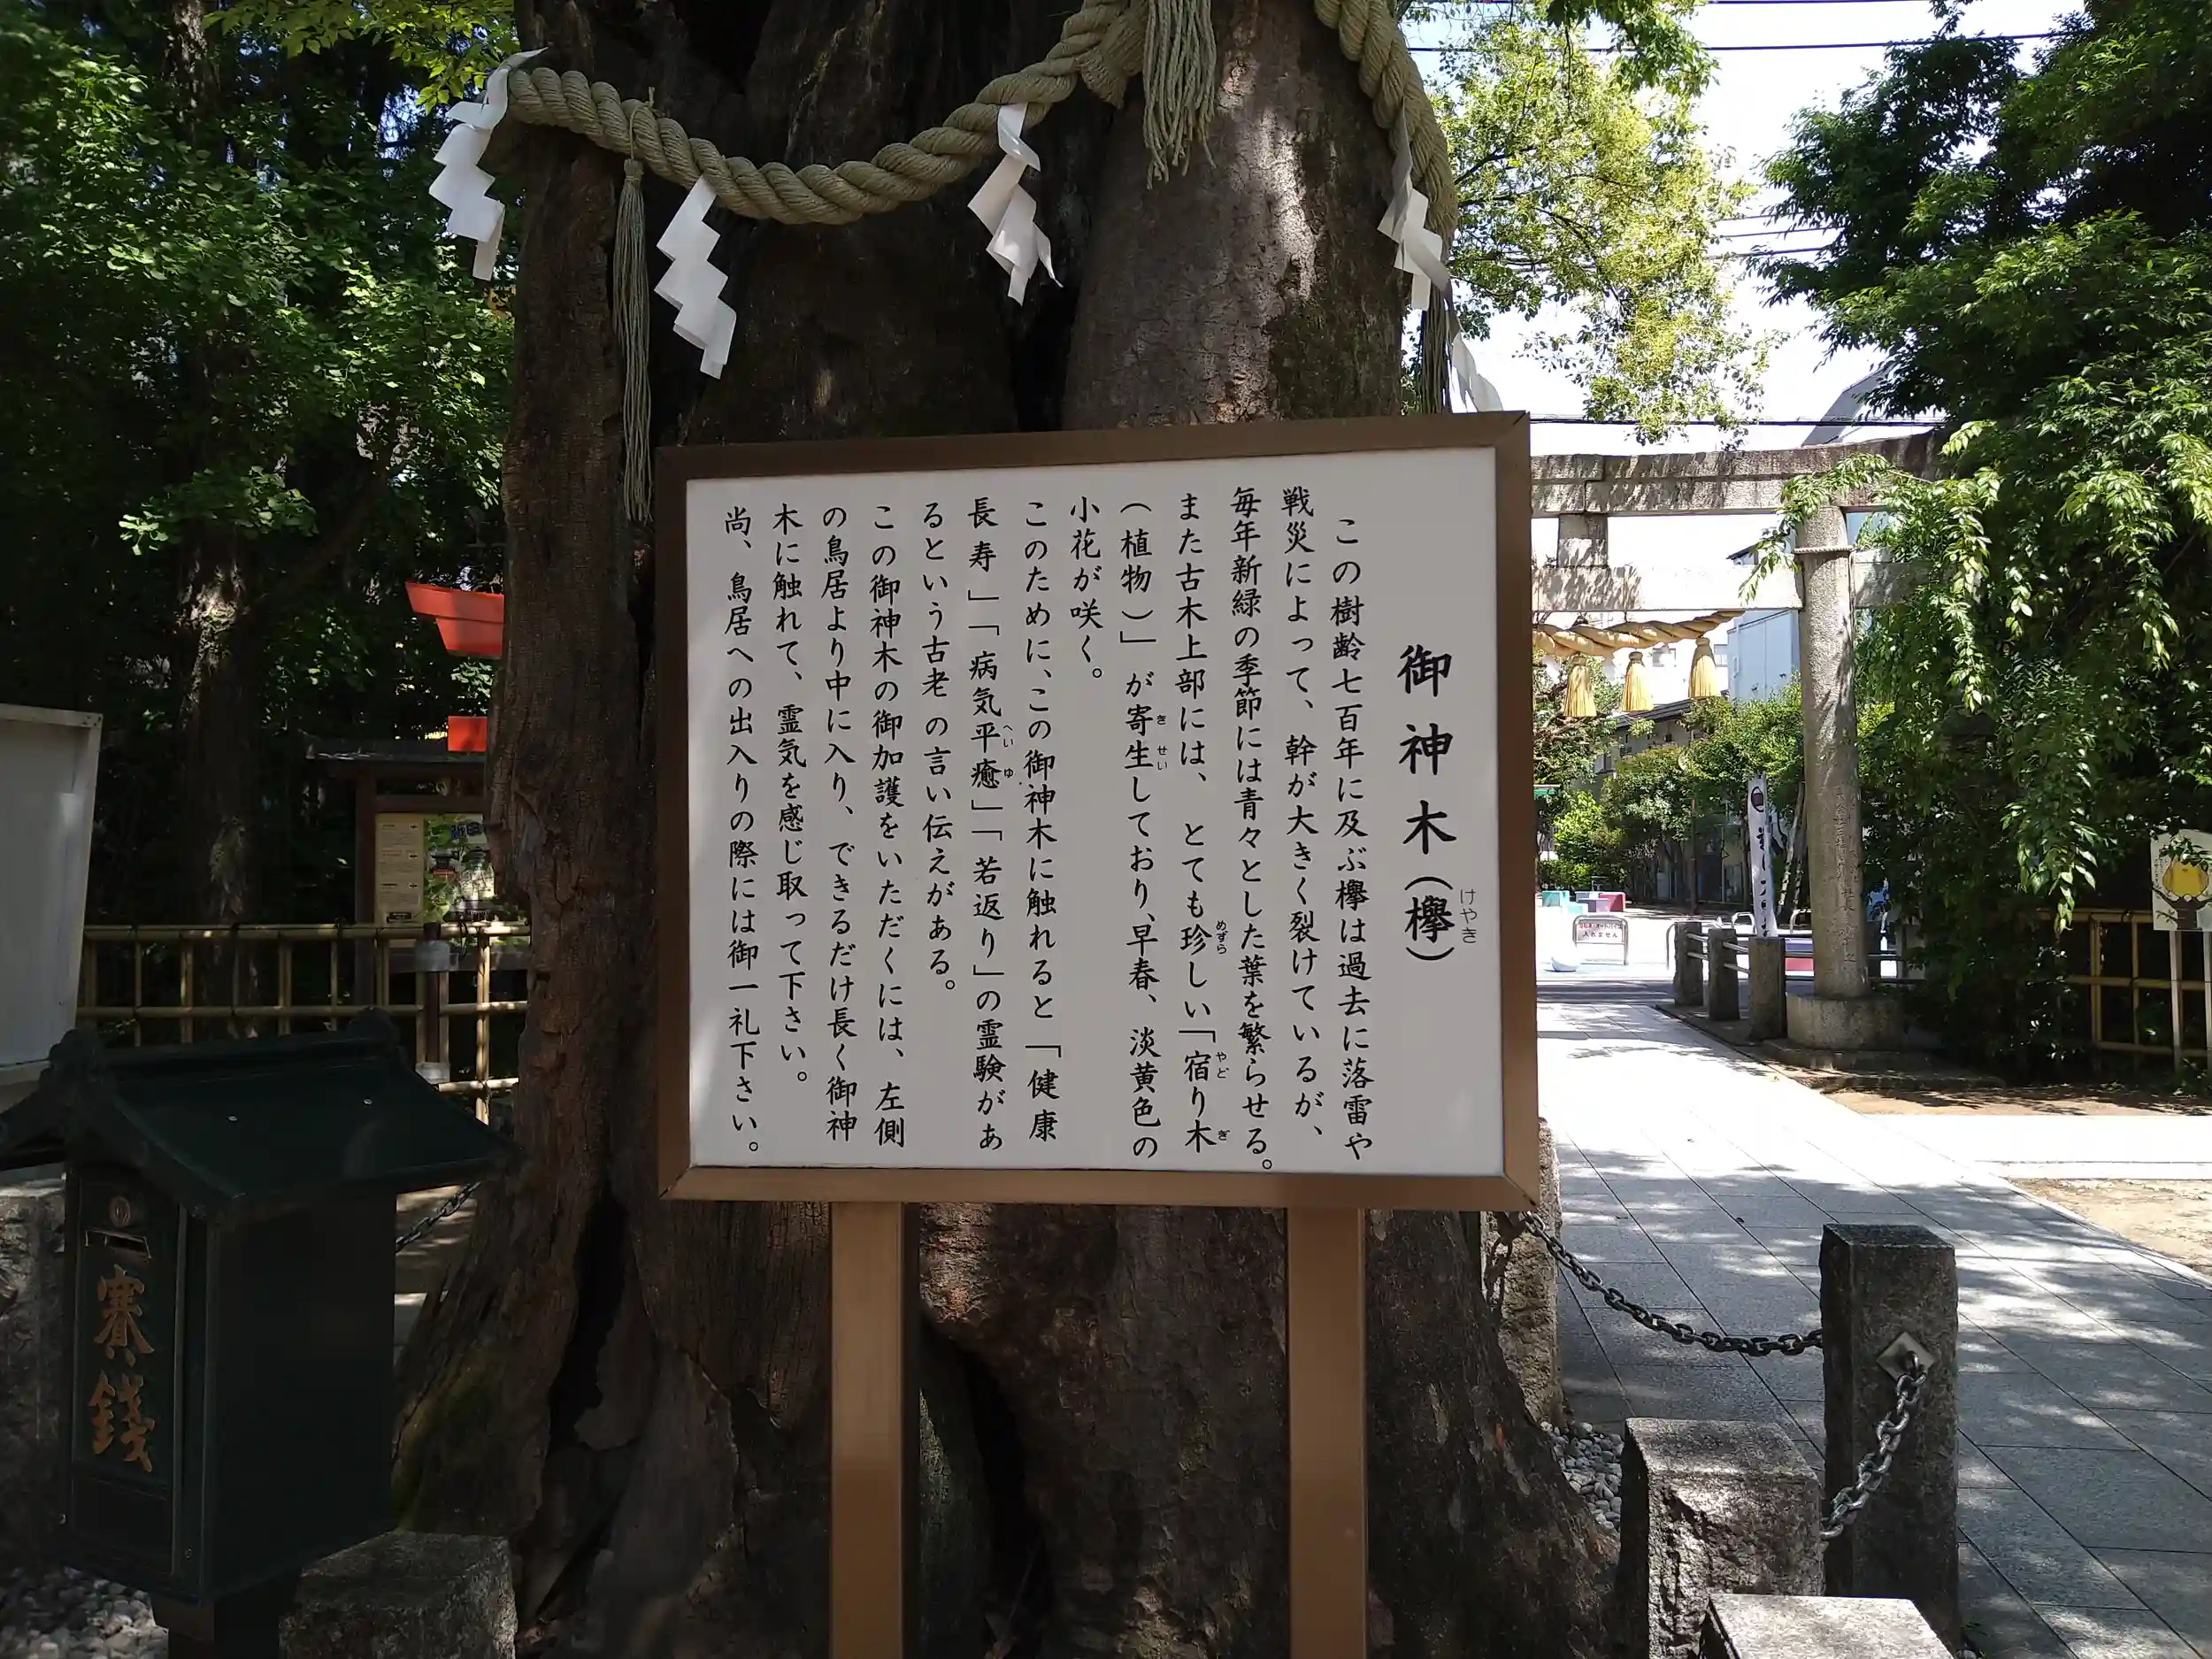 御神木（欅）
けやき
この樹齢七百年に及ぶ欅は過去に落雷や
戦災によって、幹が大きく裂けているが、
毎年新緑の季節には青々とした葉を繁らせる。
また古木上部には、とても珍しい「宿り木
めずら
やど
ぎ
（植物）」が寄生しており、早春、淡黄色の
き
せい
小花が咲く。
このために、この御神木に触れると「健康
長寿」「病気平癒」「若返り」の霊験があ
へい
ゆ
るという古老の言い伝えがある。
この御神木の御加護をいただくには、左側
の鳥居より中に入り、できるだけ長く御神
木に触れて、霊気を感じ取って下さい。
尚、鳥居への出入りの際には御一礼下さい。
賽銭
入れません